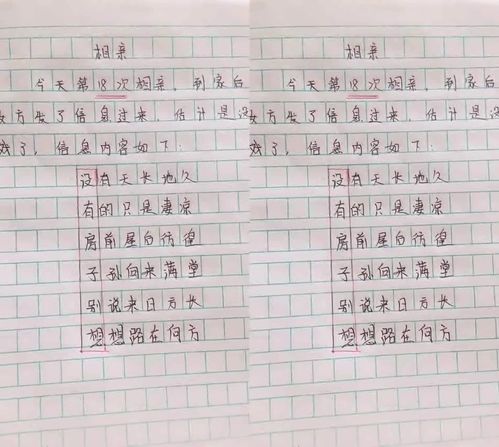 相亲
今天第18次相亲，到家后
女方发了信息过来，估计是没
戏了，信息内容如下：
没有天长地久
有的只是凄凉
房前屋后彷徨
子孙何来满堂
别说来日方长
想想路在何方
相亲
今天第18次相亲，到家后
女方发了信息过来，估计是没
戏了，信息内容如下：
没有天长地久
有的只是凄凉
房前屋后彷徨
子孙何来满堂
别说来日方长
想想路在何方